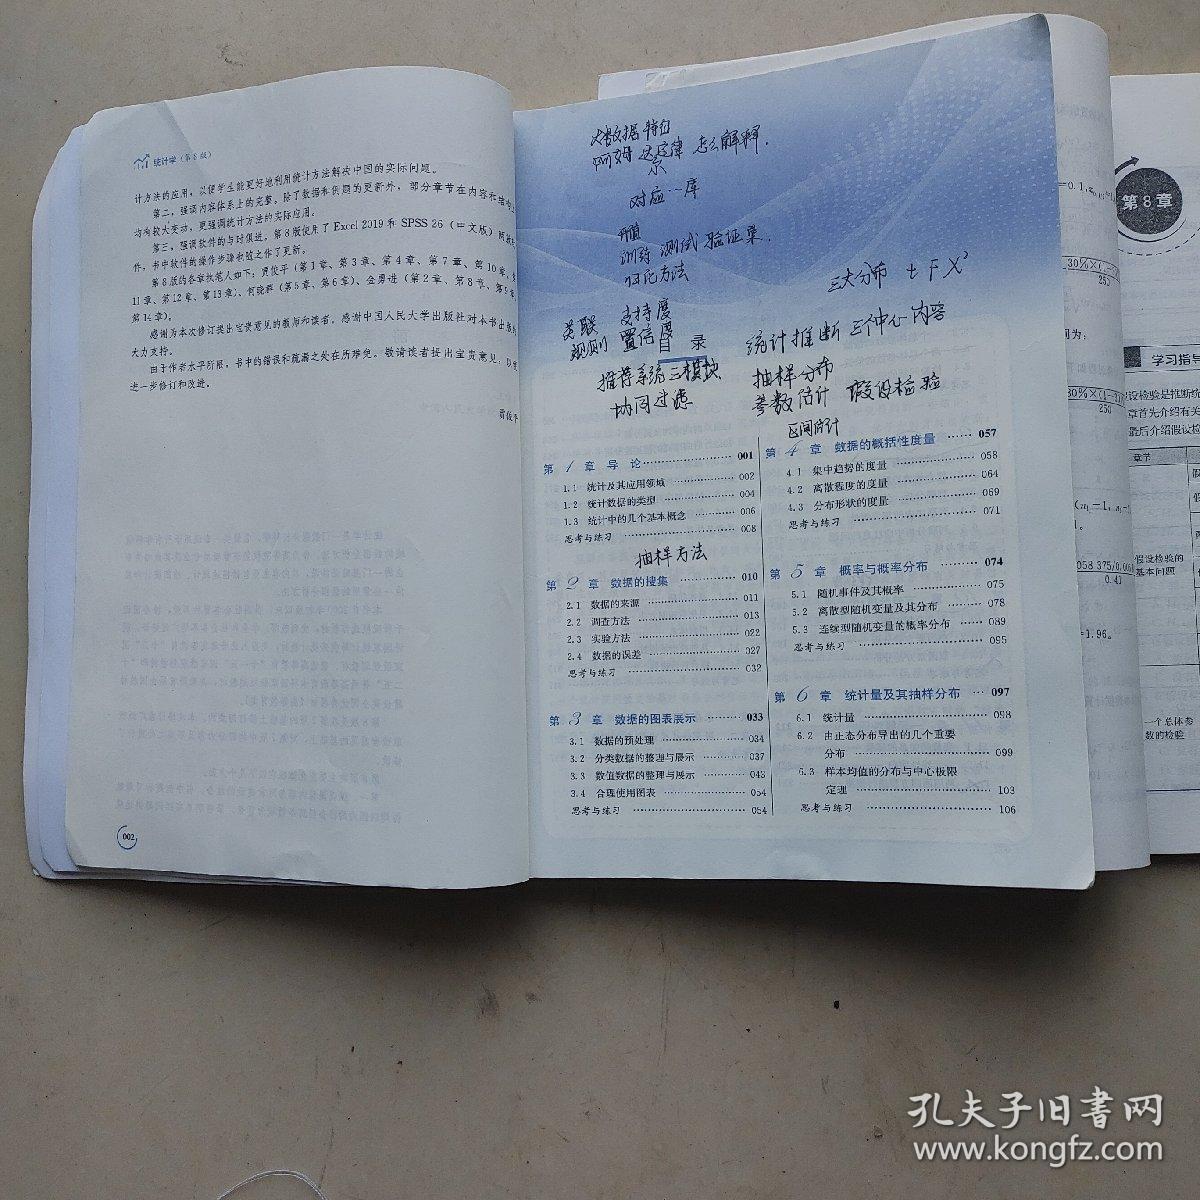 统计学（第8版）
计方法的应用，以便学生能更好地利用统计方法解决中国的实际问题。
第二，强调内容体系上的完整。除了数据和例题的更新外，部分章节在内容和结构上
均有较大变动，更强调统计方法的实际应用。
第三，强调软件的与时俱进。第8版使用了Excel 2019和SPSS 26（中文版）两款软
件，书中软件的操作步骤也随之作了更新。
第8版的各章执笔人如下：贾俊平（第1章、第3章、第4章、第7章、第10章、第
11章、第12章、第13章）、何晓群（第5章、第6章）、金勇进（第2章、第8节、第9章、
第14章）。
感谢为本次修订提出宝贵意见的教师和读者。感谢中国人民大学出版社对本书出版的
大力支持。
由于作者水平所限，书中的错误和疏漏之处在所难免。敬请读者提出宝贵意见，以便
进一步修订和改进。
贾俊平
002
大数据 特征
定律 怎么解释.
对应一库
训练 测试 验证集.
归一化方法
三大分布 t F X²
关联 支持度
规则 置信度
统计推断 三个中心内容
目 录
推荐系统三模块
协同过滤
抽样分布
参数估计 假设检验
区间估计
第1章 导 论 001
1.1 统计及其应用领域 002
1.2 统计数据的类型 004
1.3 统计中的几个基本概念 006
思考与练习 008
抽样方法
第2章 数据的搜集 010
2.1 数据的来源 011
2.2 调查方法 013
2.3 实验方法 022
2.4 数据的误差 027
思考与练习 032
第3章 数据的图表展示 033
3.1 数据的预处理 034
3.2 分类数据的整理与展示 037
3.3 数值数据的整理与展示 043
3.4 合理使用图表 054
思考与练习 054
第4章 数据的概括性度量 057
4.1 集中趋势的度量 058
4.2 离散程度的度量 064
4.3 分布形状的度量 069
思考与练习 071
第5章 概率与概率分布 074
5.1 随机事件及其概率 075
5.2 离散型随机变量及其分布 078
5.3 连续型随机变量的概率分布 089
思考与练习 095
第6章 统计量及其抽样分布 097
6.1 统计量 098
6.2 由正态分布导出的几个重要
分布 099
6.3 样本均值的分布与中心极限
定理 103
思考与练习 106
第8章
学习指导
章节
假设检验的
基本问题
一个总体参
数的检验
孔夫子旧书网
www.kongfz.com